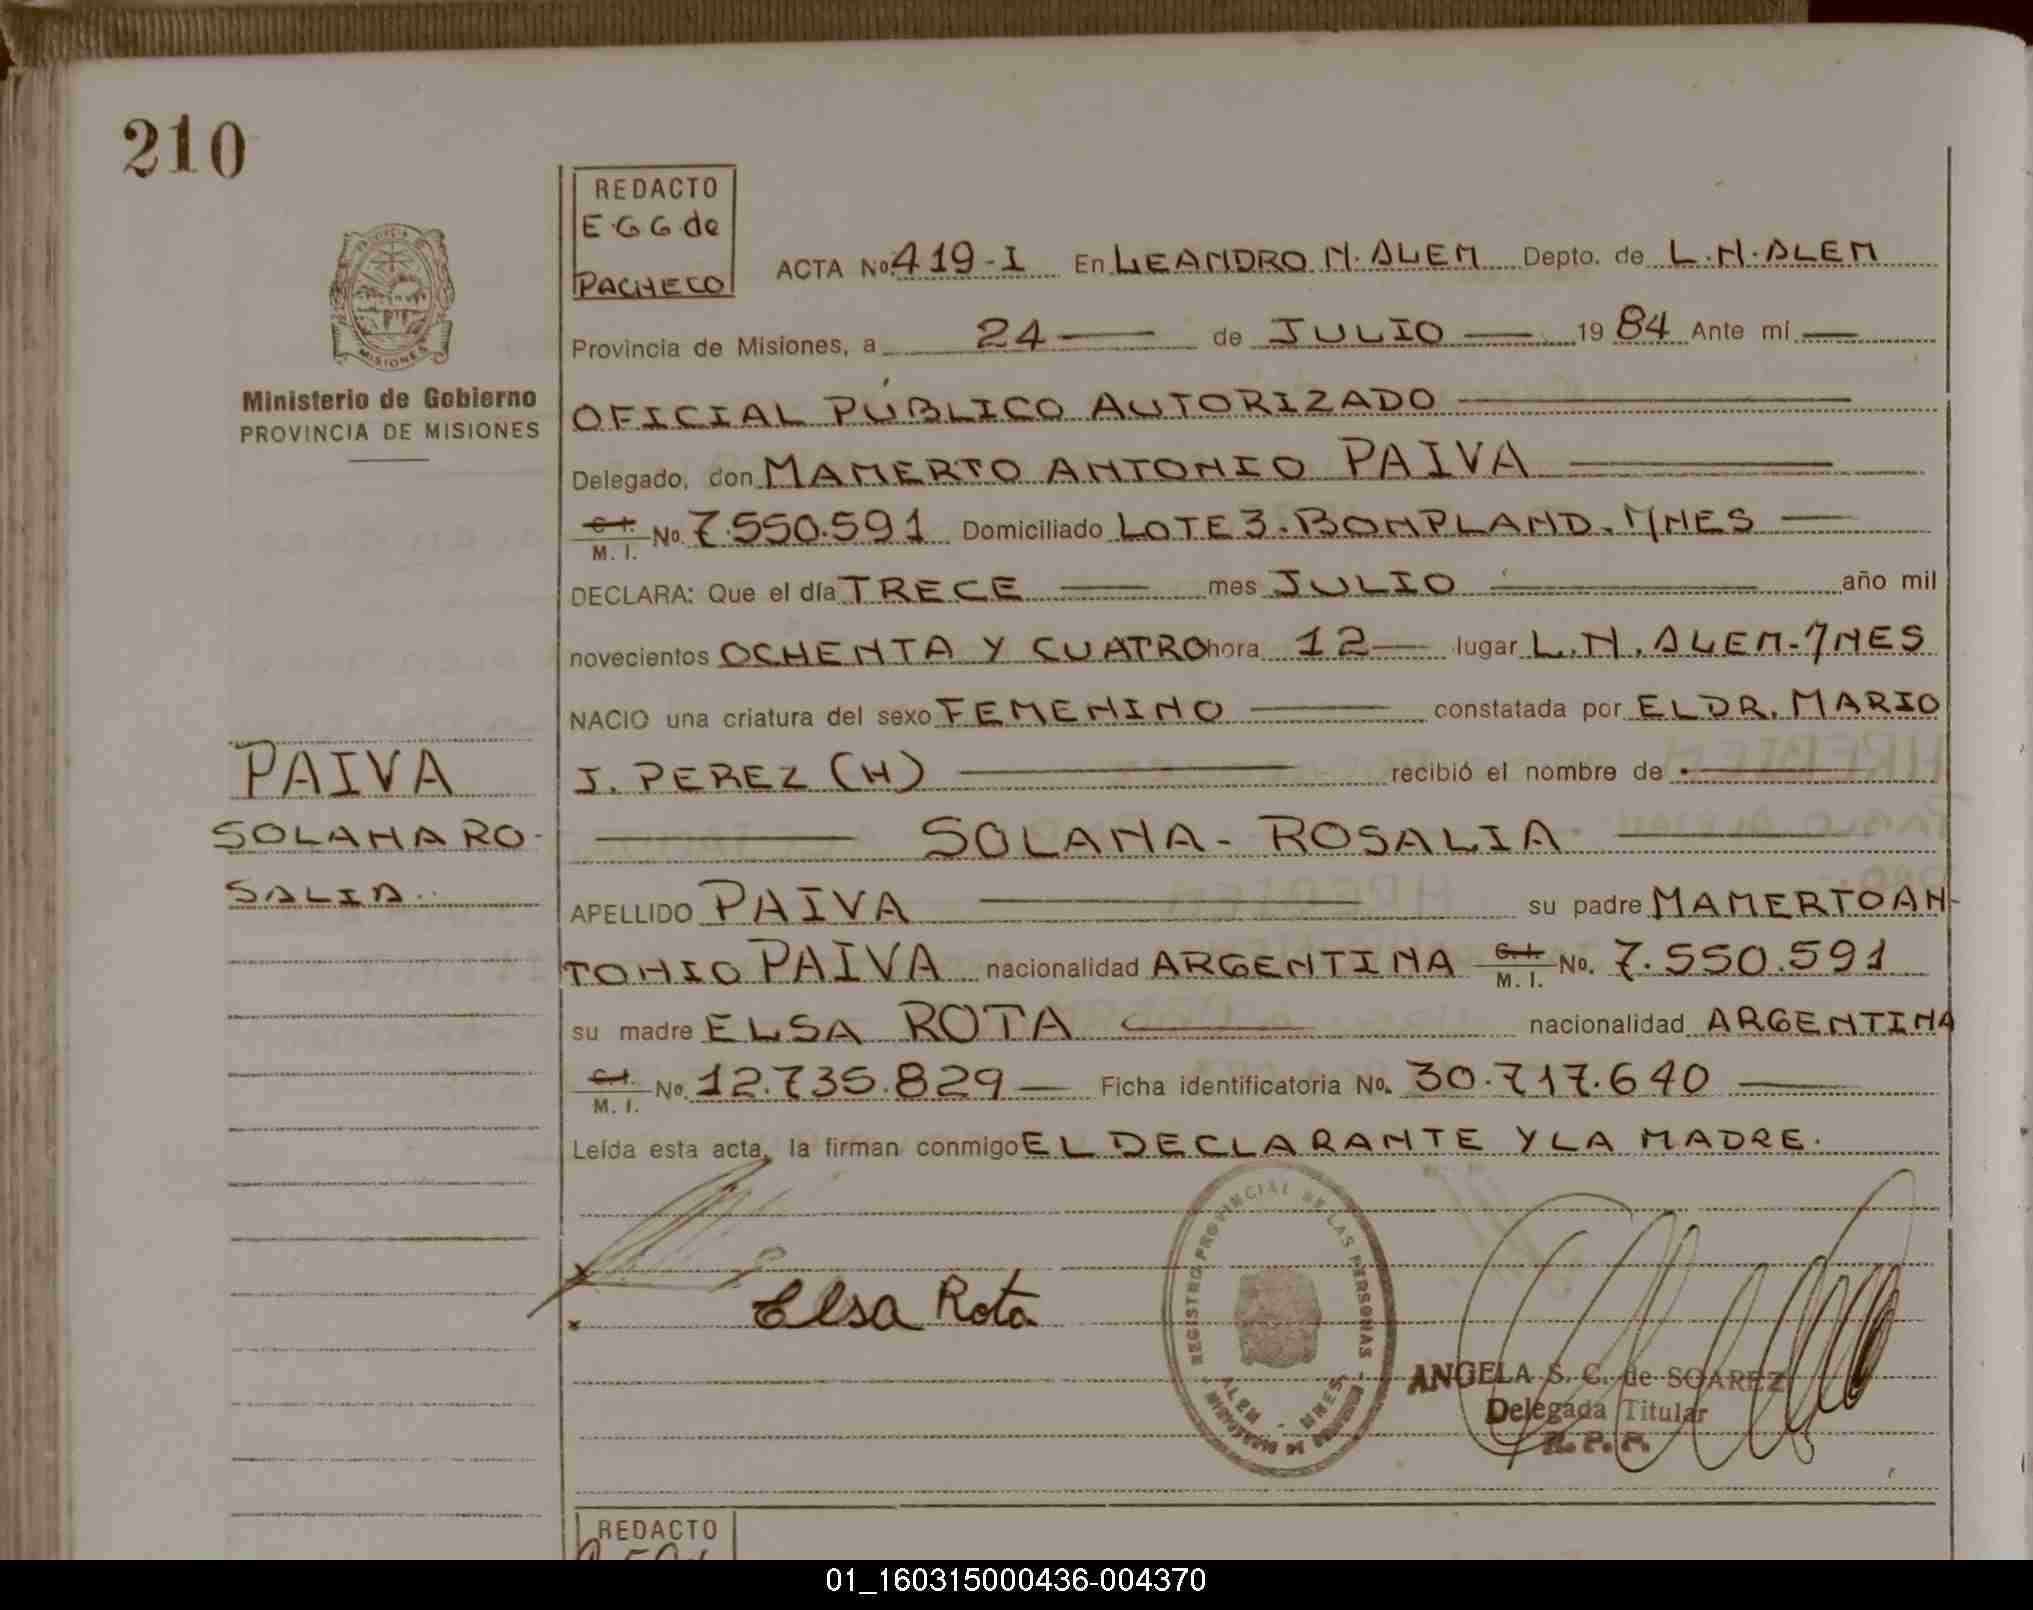 210
REDACTO
E.G.G de
PACHECO
ACTA No. 419-I En LEANDRO N. ALEM Depto. de L.N. ALEM
Provincia de Misiones, a 24 de JULIO 1984 Ante mí
Ministerio de Gobierno
PROVINCIA DE MISIONES
OFICIAL PÚBLICO AUTORIZADO
Delegado, don MAMERTO ANTONIO PAIVA
C.I. M. I. No. 7.550.591 Domiciliado LOTE 3. BONPLAND. MNES
DECLARA: Que el día TRECE mes JULIO año mil
novecientos OCHENTA Y CUATRO hora 12 lugar L.N. ALEM-MNES
NACIO una criatura del sexo FEMENINO constatada por EL DR. MARIO
J. PEREZ (H) recibió el nombre de
SOLANA-ROSALIA
PAIVA
SOLANA RO-
SALIA.
APELLIDO PAIVA su padre MAMERTO AN-
TONIO PAIVA nacionalidad ARGENTINA C.I. M. I. No. 7.550.591
su madre ELSA ROTA nacionalidad ARGENTINA
C.I. M. I. No. 12.735.829 Ficha identificatoria No. 30.717.640
Leída esta acta, la firman conmigo EL DECLARANTE Y LA MADRE.
REGISTRO PROVINCIAL DE LAS PERSONAS
ALEM - MNES
MINISTERIO DE GOBIERNO
Elsa Rota
ANGELA S. C. de SOAREZ
Delegada Titular
R.P.P.
REDACTO
01_160315000436-004370